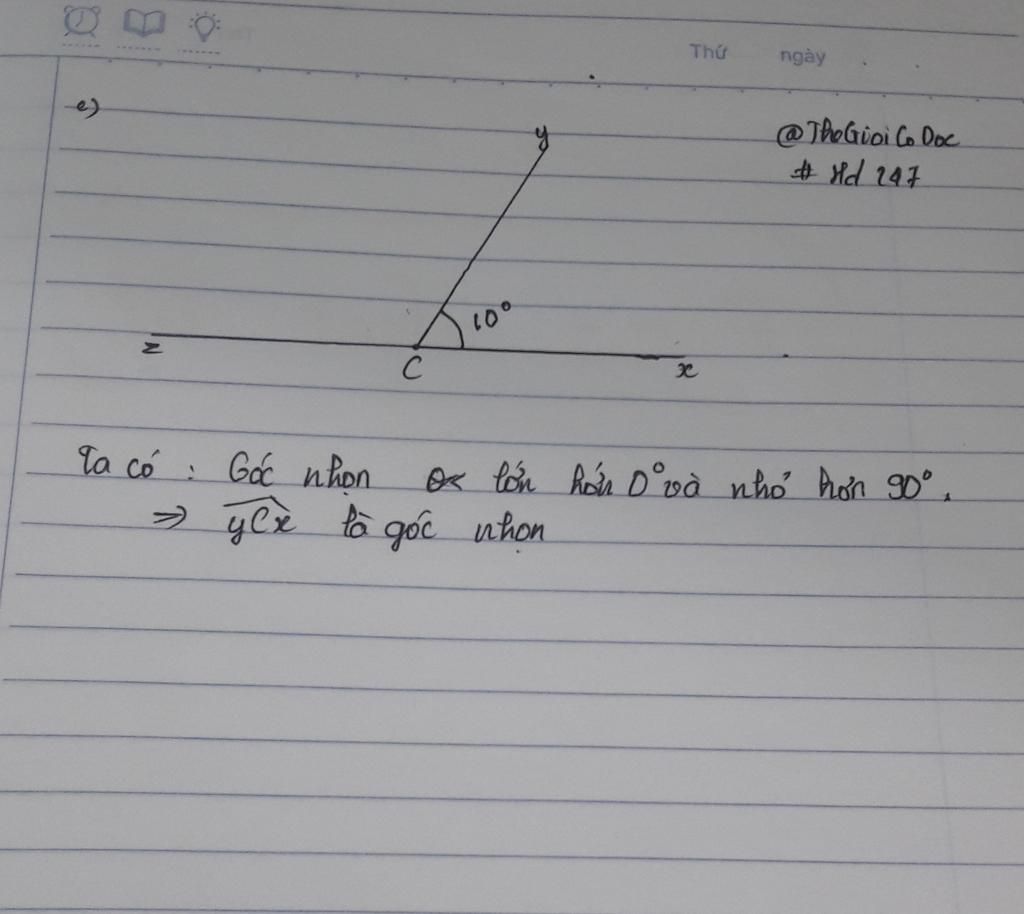 Thứ ngày
e)
@TheGioiCoDoc
# Hd 247
y
10°
z
C
x
Ta có : Góc nhọn lớn hơn 0° và nhỏ hơn 90°.
=> yCx là góc nhọn